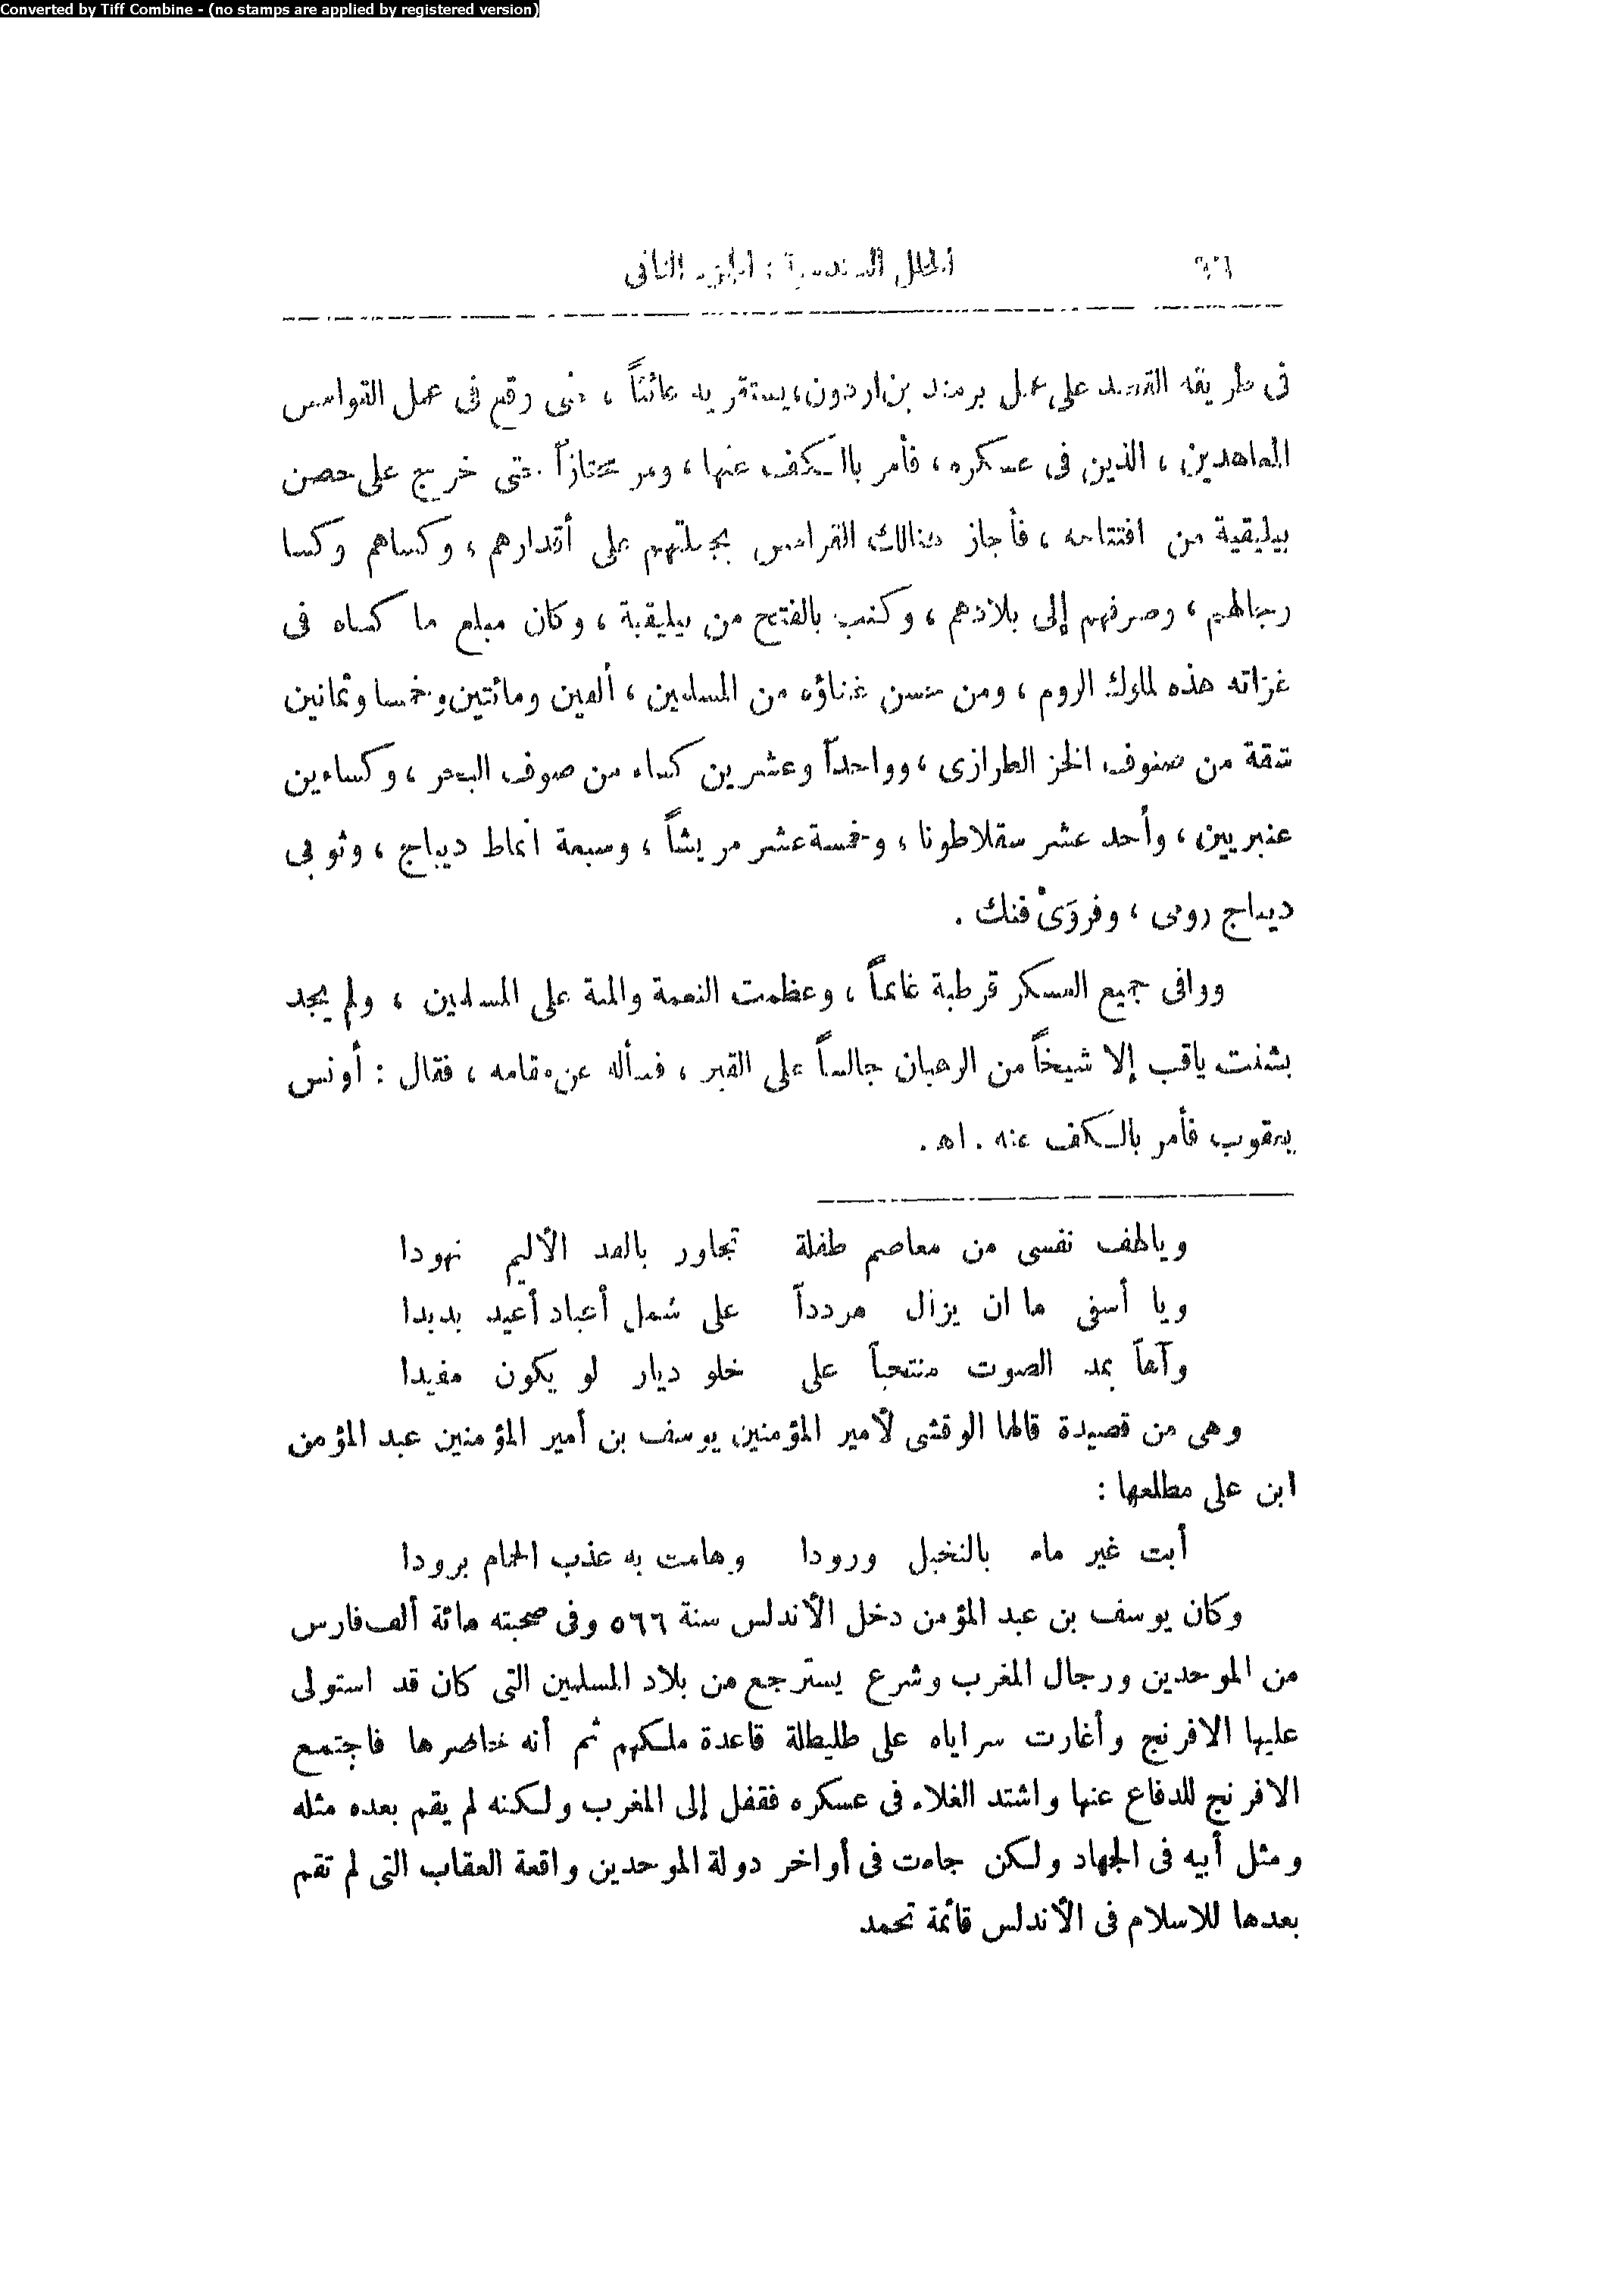 Converted by Tiff Combine - (no stamps are applied by registered version)
٦٦ الحلل السندسية : الجزء الثانى
فى طريقه القصد على عمل برمند بن اردون، يستقريه عائثاً ، حتى وقع فى عمل القوامس
المعاهدين ، الذين فى عسكره ، فأمر بالكف عنها ، ومر مجتازاً حتى خرج على حصن
بيليقية من افتتاحه ، فأجاز هنالك القوامس بجملتهم على أقدارهم ، وكساهم وكسا
رجالهم ، وصرفهم إلى بلادهم ، وكتب بالفتح من بيليقية ، وكان مبلغ ما كساه فى
غزاته هذه لملوك الروم ، ومن حسن غناؤه من المسلمين ، ألفين ومائتين وخمسا وثمانين
شقة من صنوف الخز الطرازى ، وواحداً وعشرين كساء من صوف البحر ، وكساءين
عنبريين ، وأحد عشر سقلاطونا ، وخمسة عشر مريشاً ، وسبعة أنماط ديباج ، وثوبى
ديباج رومى ، وفروَىْ فنك .
ووافى جميع العسكر قرطبة غانماً ، وعظمت النعمة والمنة على المسلمين ، ولم يجد
بشنت ياقب إلا شيخاً من الرهبان جالساً على القبر ، فسأله عن مقامه ، فقال : أونس
يعقوب فأمر بالكف عنه . اهـ .
ويالهف نفسى من معاصم طفلة تجاور بالقد الأليم نهودا
ويا أسفى ما ان يزال مردداً على شمل أعياد أعيد بديدا
وآهاً بمد الصوت منتحباً على خلو ديار لو يكون مفيدا
وهى من قصيدة قالها الوقشى لأمير المؤمنين يوسف بن أمير المؤمنين عبد المؤمن
ابن على مطلعها :
أبت غير ماء بالنخيل ورودا وهامت به عذب الحمام برودا
وكان يوسف بن عبد المؤمن دخل الأندلس سنة ٥٦٦ وفى صحبته مائة ألف فارس
من الموحدين ورجال المغرب وشرع يسترجع من بلاد المسلمين التى كان قد استولى
عليها الافرنج وأغارت سراياه على طليطلة قاعدة ملكهم ثم أنه حاصرها فاجتمع
الافرنج للدفاع عنها واشتد الغلاء فى عسكره فقفل إلى المغرب ولكنه لم يقم بعده مثله
ومثل أبيه فى الجهاد ولكن جاءت فى أواخر دولة الموحدين واقعة العقاب التى لم تقم
بعدها للاسلام فى الأندلس قائمة تحمد